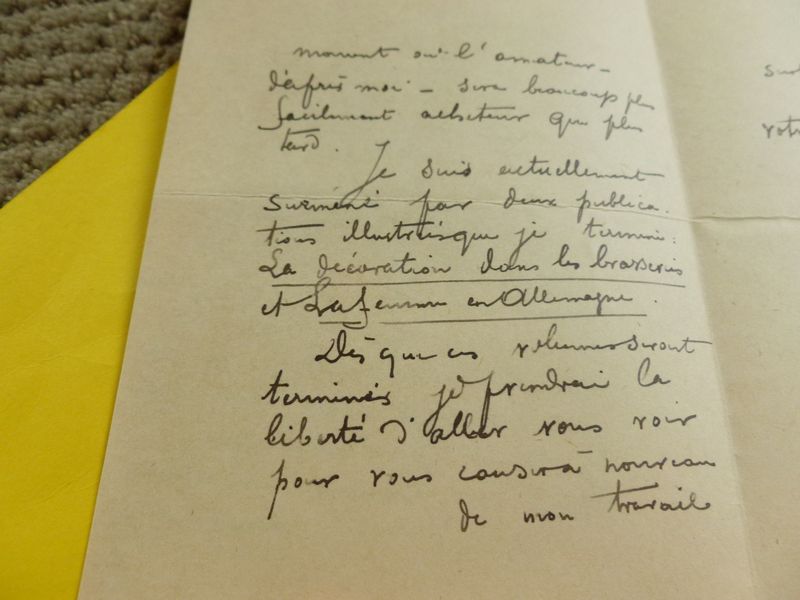 moment où l'amateur –
d'après moi – sera beaucoup plus
facilement acheteur que plus
tard.
Je suis actuellement
surmené par deux publica-
tions illustrées que je termine:
La décoration dans les brasseries
et La femme en Allemagne.
Dès que ces volumes seront
terminés je prendrai la
liberté d'aller vous voir
pour vous causer à nouveau
de mon travail
votr